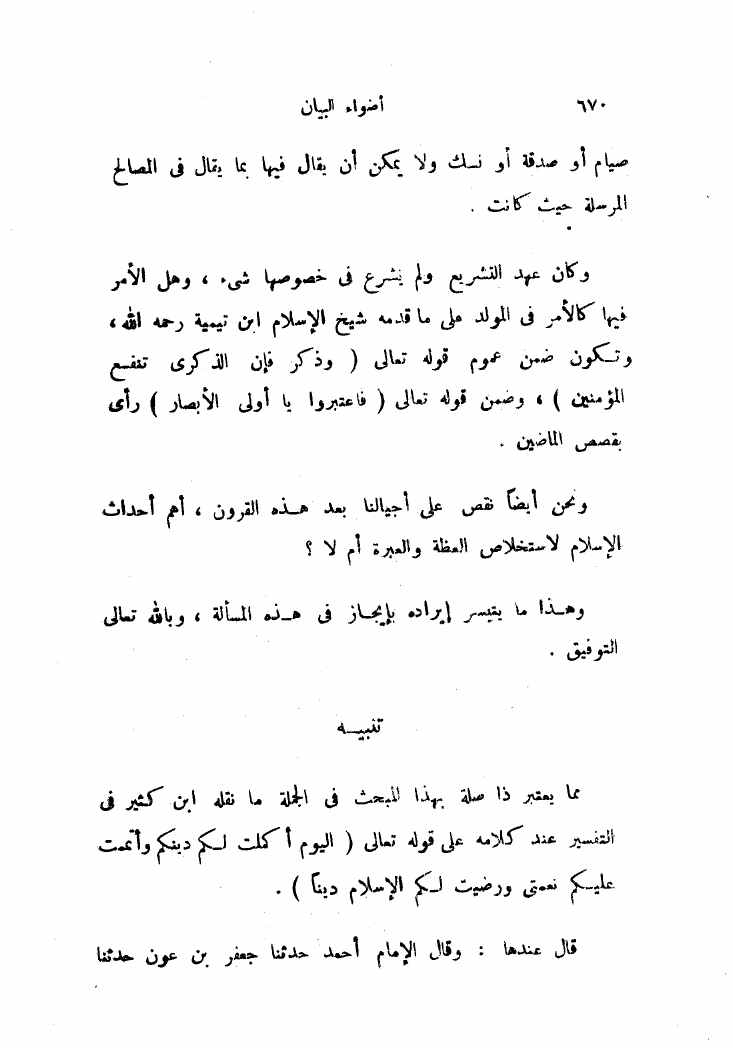 ٦٧٠ أضواء البيان
صيام أو صدقة أو نسك ولا يمكن أن يقال فيها بما يقال فى المصالح
المرسلة حيث كانت .
وكان عهد التشريع ولم يشرع فى خصوصها شىء ، وهل الأمر
فيها كالأمر فى المولد على ما قدمه شيخ الإسلام ابن تيمية رحمه الله ،
وتكون ضمن عموم قوله تعالى ( وذكر فإن الذكرى تنفع
المؤمنين ) ، وضمن قوله تعالى ( فاعتبروا يا أولى الأبصار ) رأى
بقصص الماضين .
ونحن أيضاً نقص على أجيالنا بعد هذه القرون ، أهم أحداث
الإسلام لاستخلاص العظة والعبرة أم لا ؟
وهذا ما يتيسر إيراده بإيجاز فى هذه المسألة ، وبالله تعالى
التوفيق .
تنبيه
مما يعتبر ذا صلة بهذا المبحث فى الجملة ما نقله ابن كثير فى
التفسير عند كلامه على قوله تعالى ( اليوم أكملت لكم دينكم وأتممت
عليكم نعمتى ورضيت لكم الإسلام ديناً ) .
قال عندها : وقال الإمام أحمد حدثنا جعفر بن عون حدثنا